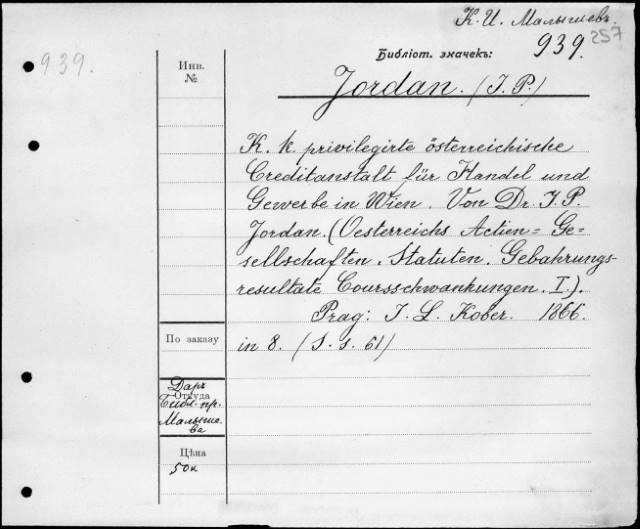 К. И. Малышевъ.
257
939.
Инв.
№
Библіот. значекъ:
939.
Jordan. (J. P.)
K. k. privilegirte österreichische
Creditanstalt für Handel und
Gewerbe in Wien. Von Dr. J. P.
Jordan. (Oesterreichs Actien= Ge=
sellschaften. Statuten. Gebahrungs-
resultate Coursschwankungen. I.).
Prag: I. L. Kober. 1866.
По заказу
in 8. (S. s. 61)
Даръ
Откуда
Библ. пр.
Малыше
ва
Цѣна
50 к